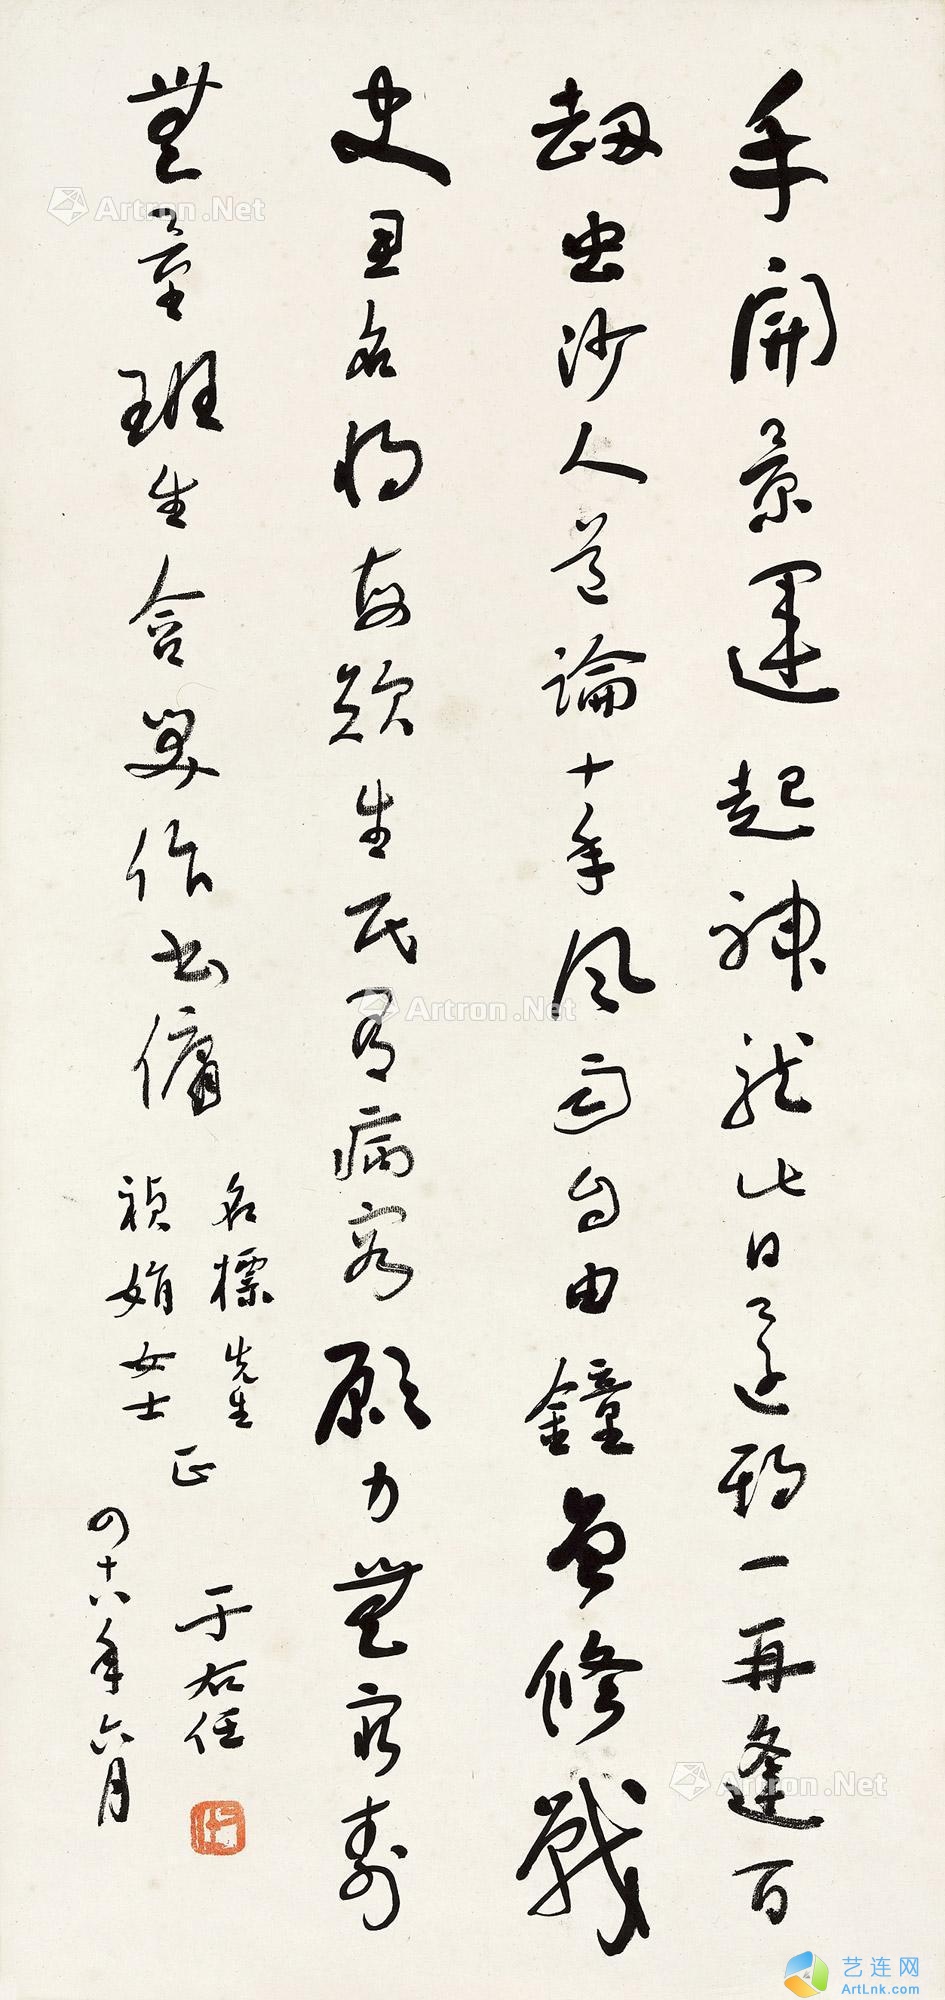 手開景運起神龍此日還期一再逢百
劫虫沙人道論十年風雨自由鐘曾修戰
史思名將每歎生民有病容願力無窮壽
無量班生含笑作書傭
名標先生
禎娟女士
正
于右任
四十八年六月
Artron.Net
Artron.Net
Artron.Net
艺连网
ArtLnk.com